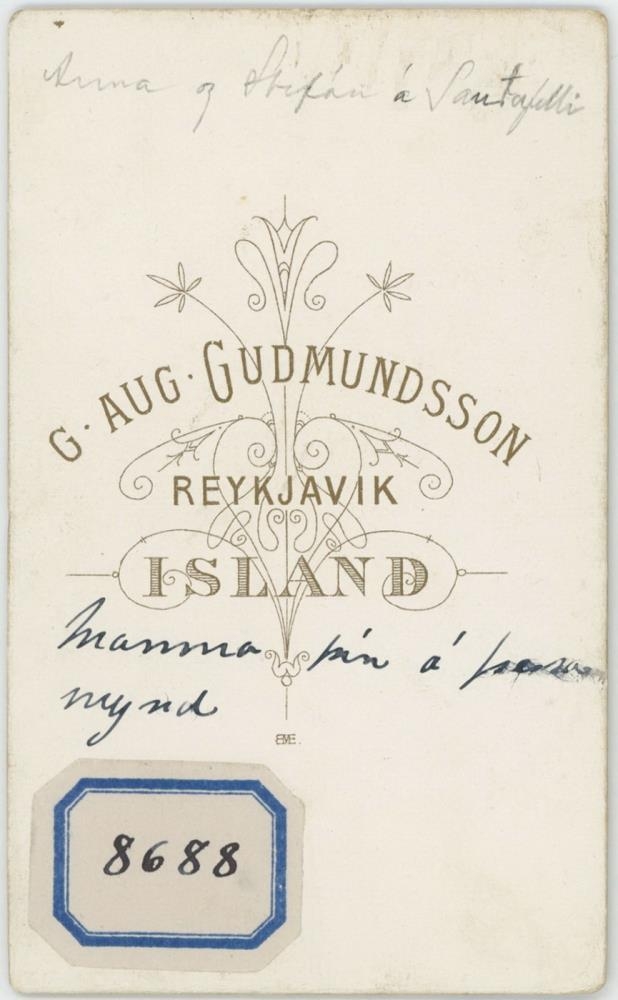 Anna og Stefán á Sandfelli
G. AUG. GUDMUNDSSON
REYKJAVIK
ISLAND
Mamma þín á
mynd
8688